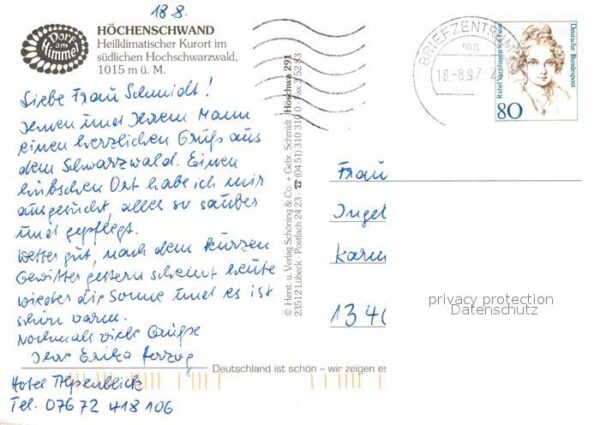 18.8.
Dorf am Himmel
HÖCHENSCHWAND
Heilklimatischer Kurort im
südlichen Hochschwarzwald,
1015 m ü. M.
Liebe Frau Schmidt!
Ihnen und Ihrem Mann
einen herzlichen Gruß aus
dem Schwarzwald. Einen
hübschen Ort habe ich mir
ausgesucht, alles so sauber
und gepflegt.
Wetter gut, nach dem kurzen
Gewitter gestern scheint heute
wieder die Sonne und es ist
schön warm.
Nochmals viele Grüße
Ihre Erika Herzog
Hotel Alpenblick
Tel. 07672 418 106
© Herst. u. Verlag Schöning & Co. + Gebr. Schmidt · Höschwa 291
23512 Lübeck · Postfach 24 23 · ☎ (04 51) 310 310 · Fax 3 52 83
Deutschland ist schön – wir zeigen es
BRIEFZENTRUM
18.-8.97
Deutsche Bundespost
Rahel Varnhagen von Ense
80
Frau
Inge
1340
privacy protection
Datenschutz